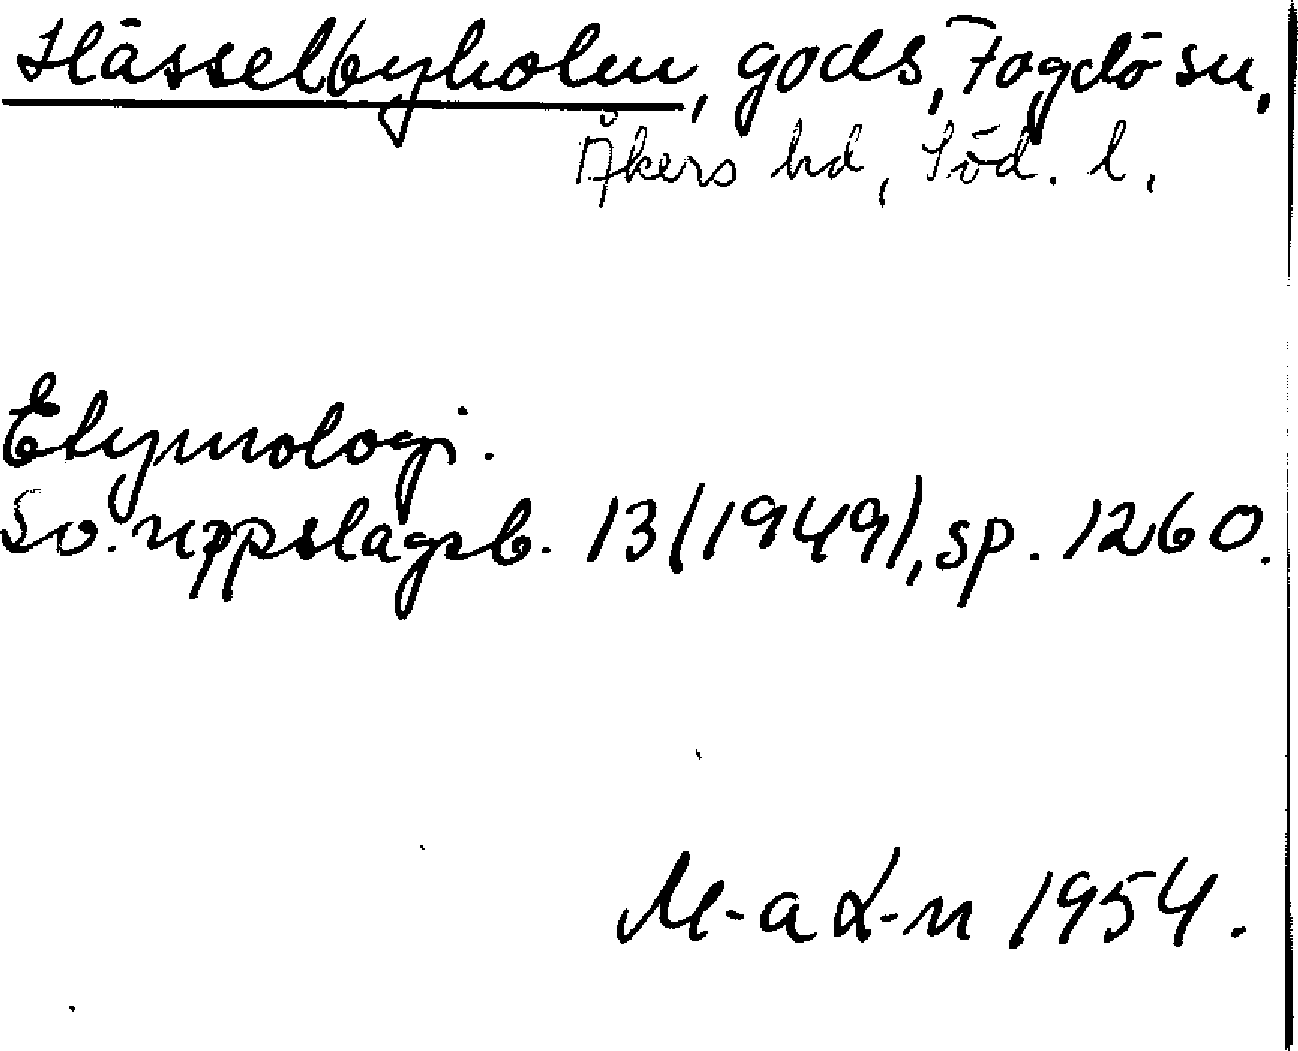 Hässelbyholm, gods, Fogdö sn,
Åkers hd, Söd. l.
Etymologi.
Sv. uppslagsb. 13 (1949), sp. 1260.
M-a L-n 1954.